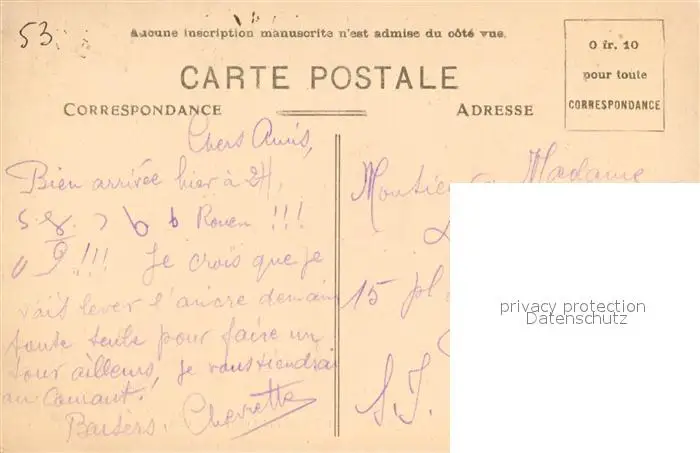 53.
Aucune inscription manuscrite n'est admise du côté vue.
CARTE POSTALE
CORRESPONDANCE
ADRESSE
0 fr. 10
pour toute
CORRESPONDANCE
Chers Amis,
Bien arrivée hier à 2H,
Rouen !!!
!!! Je crois que je
vais lever l'ancre demain
toute seule pour faire un
tour ailleurs, je vous tiendrai
au courant.
Baisers. Chevrette
Madame
15 pl
S.J.
privacy protection
Datenschutz